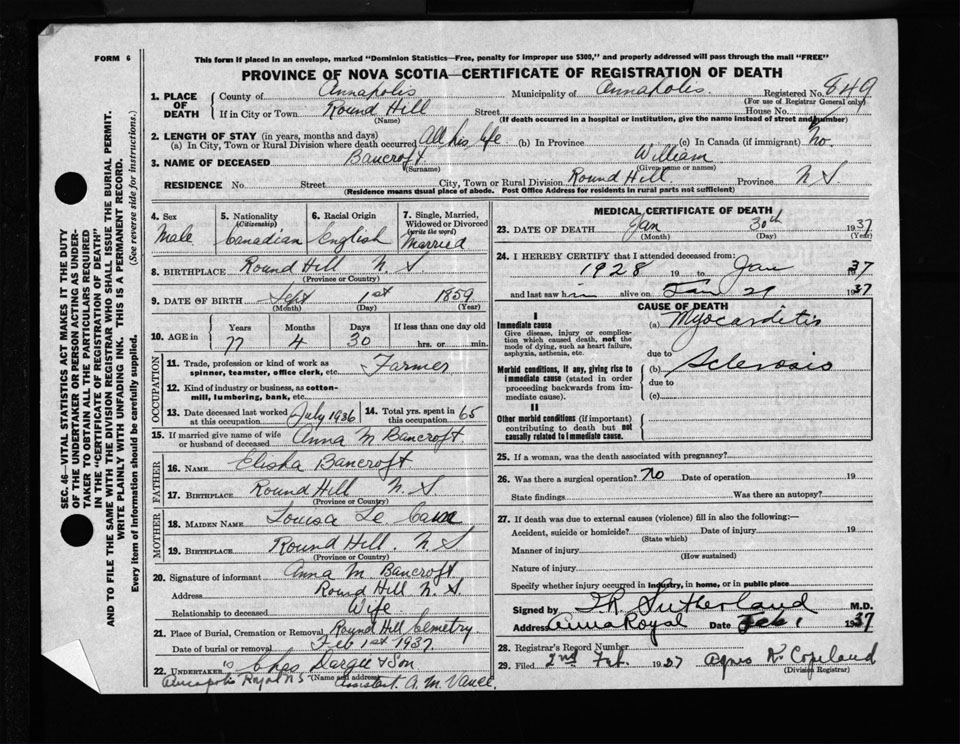 FORM 6
This form if placed in an envelope, marked "Dominion Statistics—Free, penalty for improper use $300," and properly addressed will pass through the mail "FREE"
PROVINCE OF NOVA SCOTIA—CERTIFICATE OF REGISTRATION OF DEATH
1. PLACE OF DEATH County of Annapolis Municipality of Annapolis. Registered No. 849
(For use of Registrar General only)
If in City or Town Round Hill Street House No.
(Name) (If death occurred in a hospital or institution, give the name instead of street and number)
2. LENGTH OF STAY (in years, months and days)
(a) In City, Town or Rural Division where death occurred All his life (b) In Province (c) In Canada (if immigrant) No.
3. NAME OF DECEASED Bancroft William
(Surname) (Given name or names)
RESIDENCE No. Street City, Town or Rural Division Round Hill Province N S.
(Residence means usual place of abode. Post Office Address for residents in rural parts not sufficient)
4. Sex Male
5. Nationality (Citizenship) Canadian
6. Racial Origin English
7. Single, Married, Widowed or Divorced (write the word) Married
8. BIRTHPLACE Round Hill N. S.
(Province or Country)
9. DATE OF BIRTH Sept 1st 1859
(Month) (Day) (Year)
10. AGE in Years 77 Months 4 Days 30 If less than one day old hrs. or min.
OCCUPATION
11. Trade, profession or kind of work as spinner, teamster, office clerk, etc. Farmer
12. Kind of industry or business, as cotton-mill, lumbering, bank, etc.
13. Date deceased last worked at this occupation July 1936 14. Total yrs. spent in this occupation 65
15. If married give name of wife or husband of deceased Anna M Bancroft
FATHER
16. NAME Elisha Bancroft
17. BIRTHPLACE Round Hill N. S.
(Province or Country)
MOTHER
18. MAIDEN NAME Louisa Le Cain
19. BIRTHPLACE Round Hill. N. S
(Province or Country)
20. Signature of informant Anna M Bancroft
Address Round Hill N. S.
Relationship to deceased Wife
21. Place of Burial, Cremation or Removal Round Hill Cemetry.
Date of burial or removal Feb 1st 1937.
22. UNDERTAKER Chas Dargie & Son
(Name and address)
Annapolis Royal N S Assistant. A. M. Vance.
MEDICAL CERTIFICATE OF DEATH
23. DATE OF DEATH Jan 30th 1937
(Month) (Day) (Year)
24. I HEREBY CERTIFY that I attended deceased from:
1928 19 to Jan 37
and last saw him alive on Jan 29 1937
CAUSE OF DEATH
I
Immediate cause
Give disease, injury or complication which caused death, not the mode of dying, such as heart failure, asphyxia, asthenia, etc.
(a) Myocarditis
due to
Morbid conditions, if any, giving rise to immediate cause (stated in order proceeding backwards from immediate cause).
(b) Sclerosis
due to
(c)
II
Other morbid conditions (if important) contributing to death but not causally related to immediate cause.
25. If a woman, was the death associated with pregnancy?
26. Was there a surgical operation? No Date of operation 19
State findings Was there an autopsy?
27. If death was due to external causes (violence) fill in also the following:—
Accident, suicide or homicide? Date of injury 19
(State which)
Manner of injury
(How sustained)
Nature of injury
Specify whether injury occurred in industry, in home, or in public place
Signed by Sutherland M.D.
Address Anna Royal Date Feb 1 1937
28. Registrar's Record Number
29. Filed 2nd Feb. 1937 Agnes K. Copeland
(Division Registrar)
SEC. 46—VITAL STATISTICS ACT MAKES IT THE DUTY
OF THE UNDERTAKER OR PERSON ACTING AS UNDER-
TAKER TO OBTAIN ALL THE PARTICULARS REQUIRED
IN THE "CERTIFICATE OF REGISTRATION OF DEATH"
AND TO FILE THE SAME WITH THE DIVISION REGISTRAR WHO SHALL ISSUE THE BURIAL PERMIT.
WRITE PLAINLY WITH UNFADING INK. THIS IS A PERMANENT RECORD.
Every item of information should be carefully supplied. (See reverse side for instructions.)